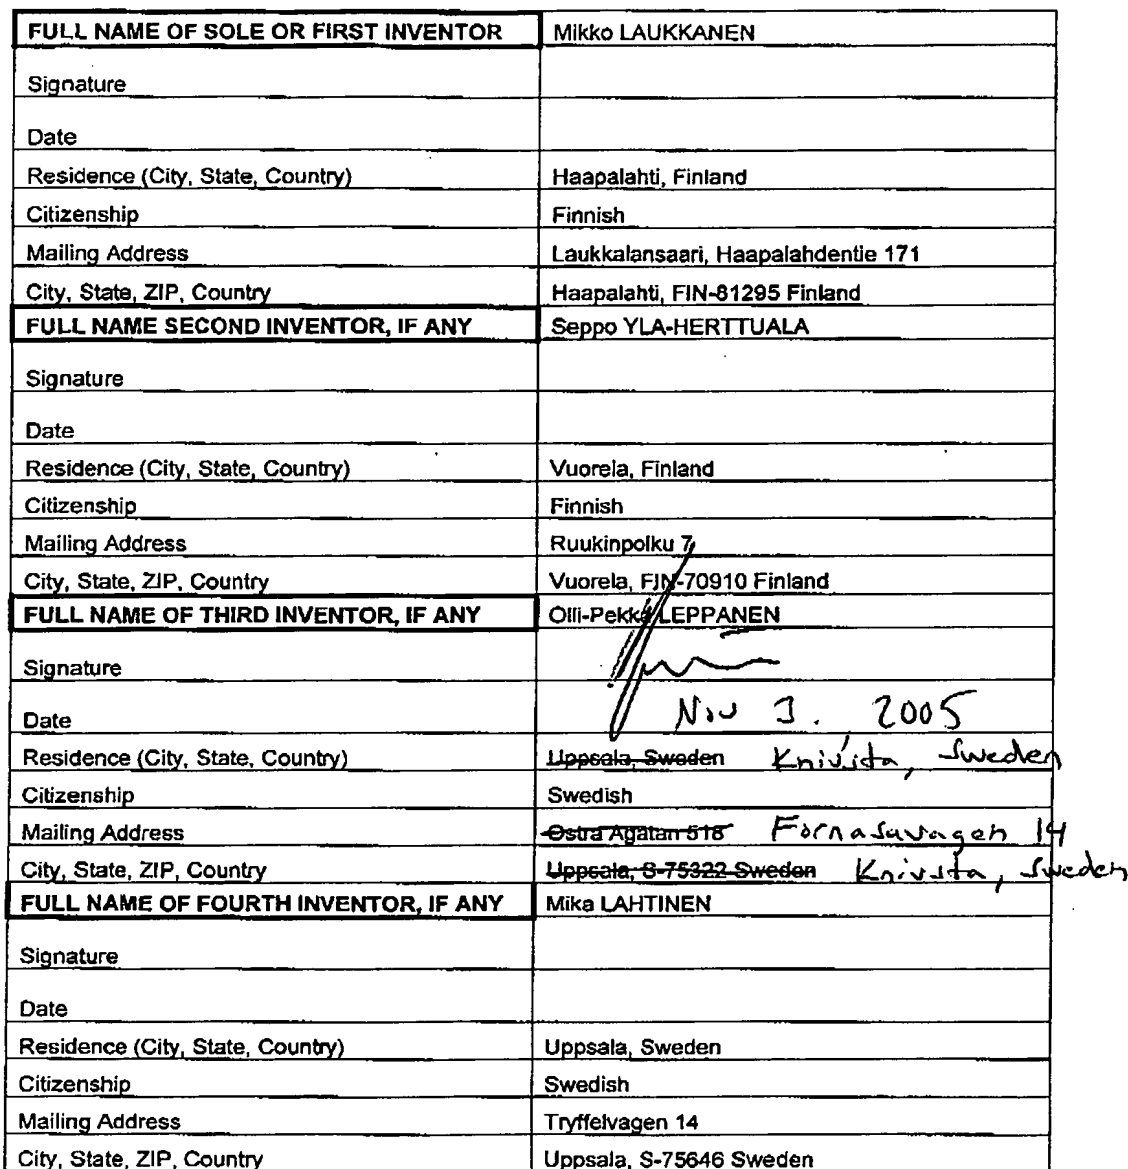 FULL NAME OF SOLE OR FIRST INVENTOR Mikko LAUKKANEN
Signature
Date
Residence (City, State, Country) Haapalahti, Finland
Citizenship Finnish
Mailing Address Laukkalansaari, Haapalahdentie 171
City, State, ZIP, Country Haapalahti, FIN-81295 Finland
FULL NAME SECOND INVENTOR, IF ANY Seppo YLA-HERTTUALA
Signature
Date
Residence (City, State, Country) Vuorela, Finland
Citizenship Finnish
Mailing Address Ruukinpolku 7
City, State, ZIP, Country Vuorela, FIN-70910 Finland
FULL NAME OF THIRD INVENTOR, IF ANY Olli-Pekka LEPPANEN
Signature
Date Nov 3, 2005
Residence (City, State, Country) Uppsala, Sweden Knivsta, Sweden
Citizenship Swedish
Mailing Address Ostra Agatan 518 Fornasavagen 14
City, State, ZIP, Country Uppsala, S-75322 Sweden Knivsta, Sweden
FULL NAME OF FOURTH INVENTOR, IF ANY Mika LAHTINEN
Signature
Date
Residence (City, State, Country) Uppsala, Sweden
Citizenship Swedish
Mailing Address Tryffelvagen 14
City, State, ZIP, Country Uppsala, S-75646 Sweden